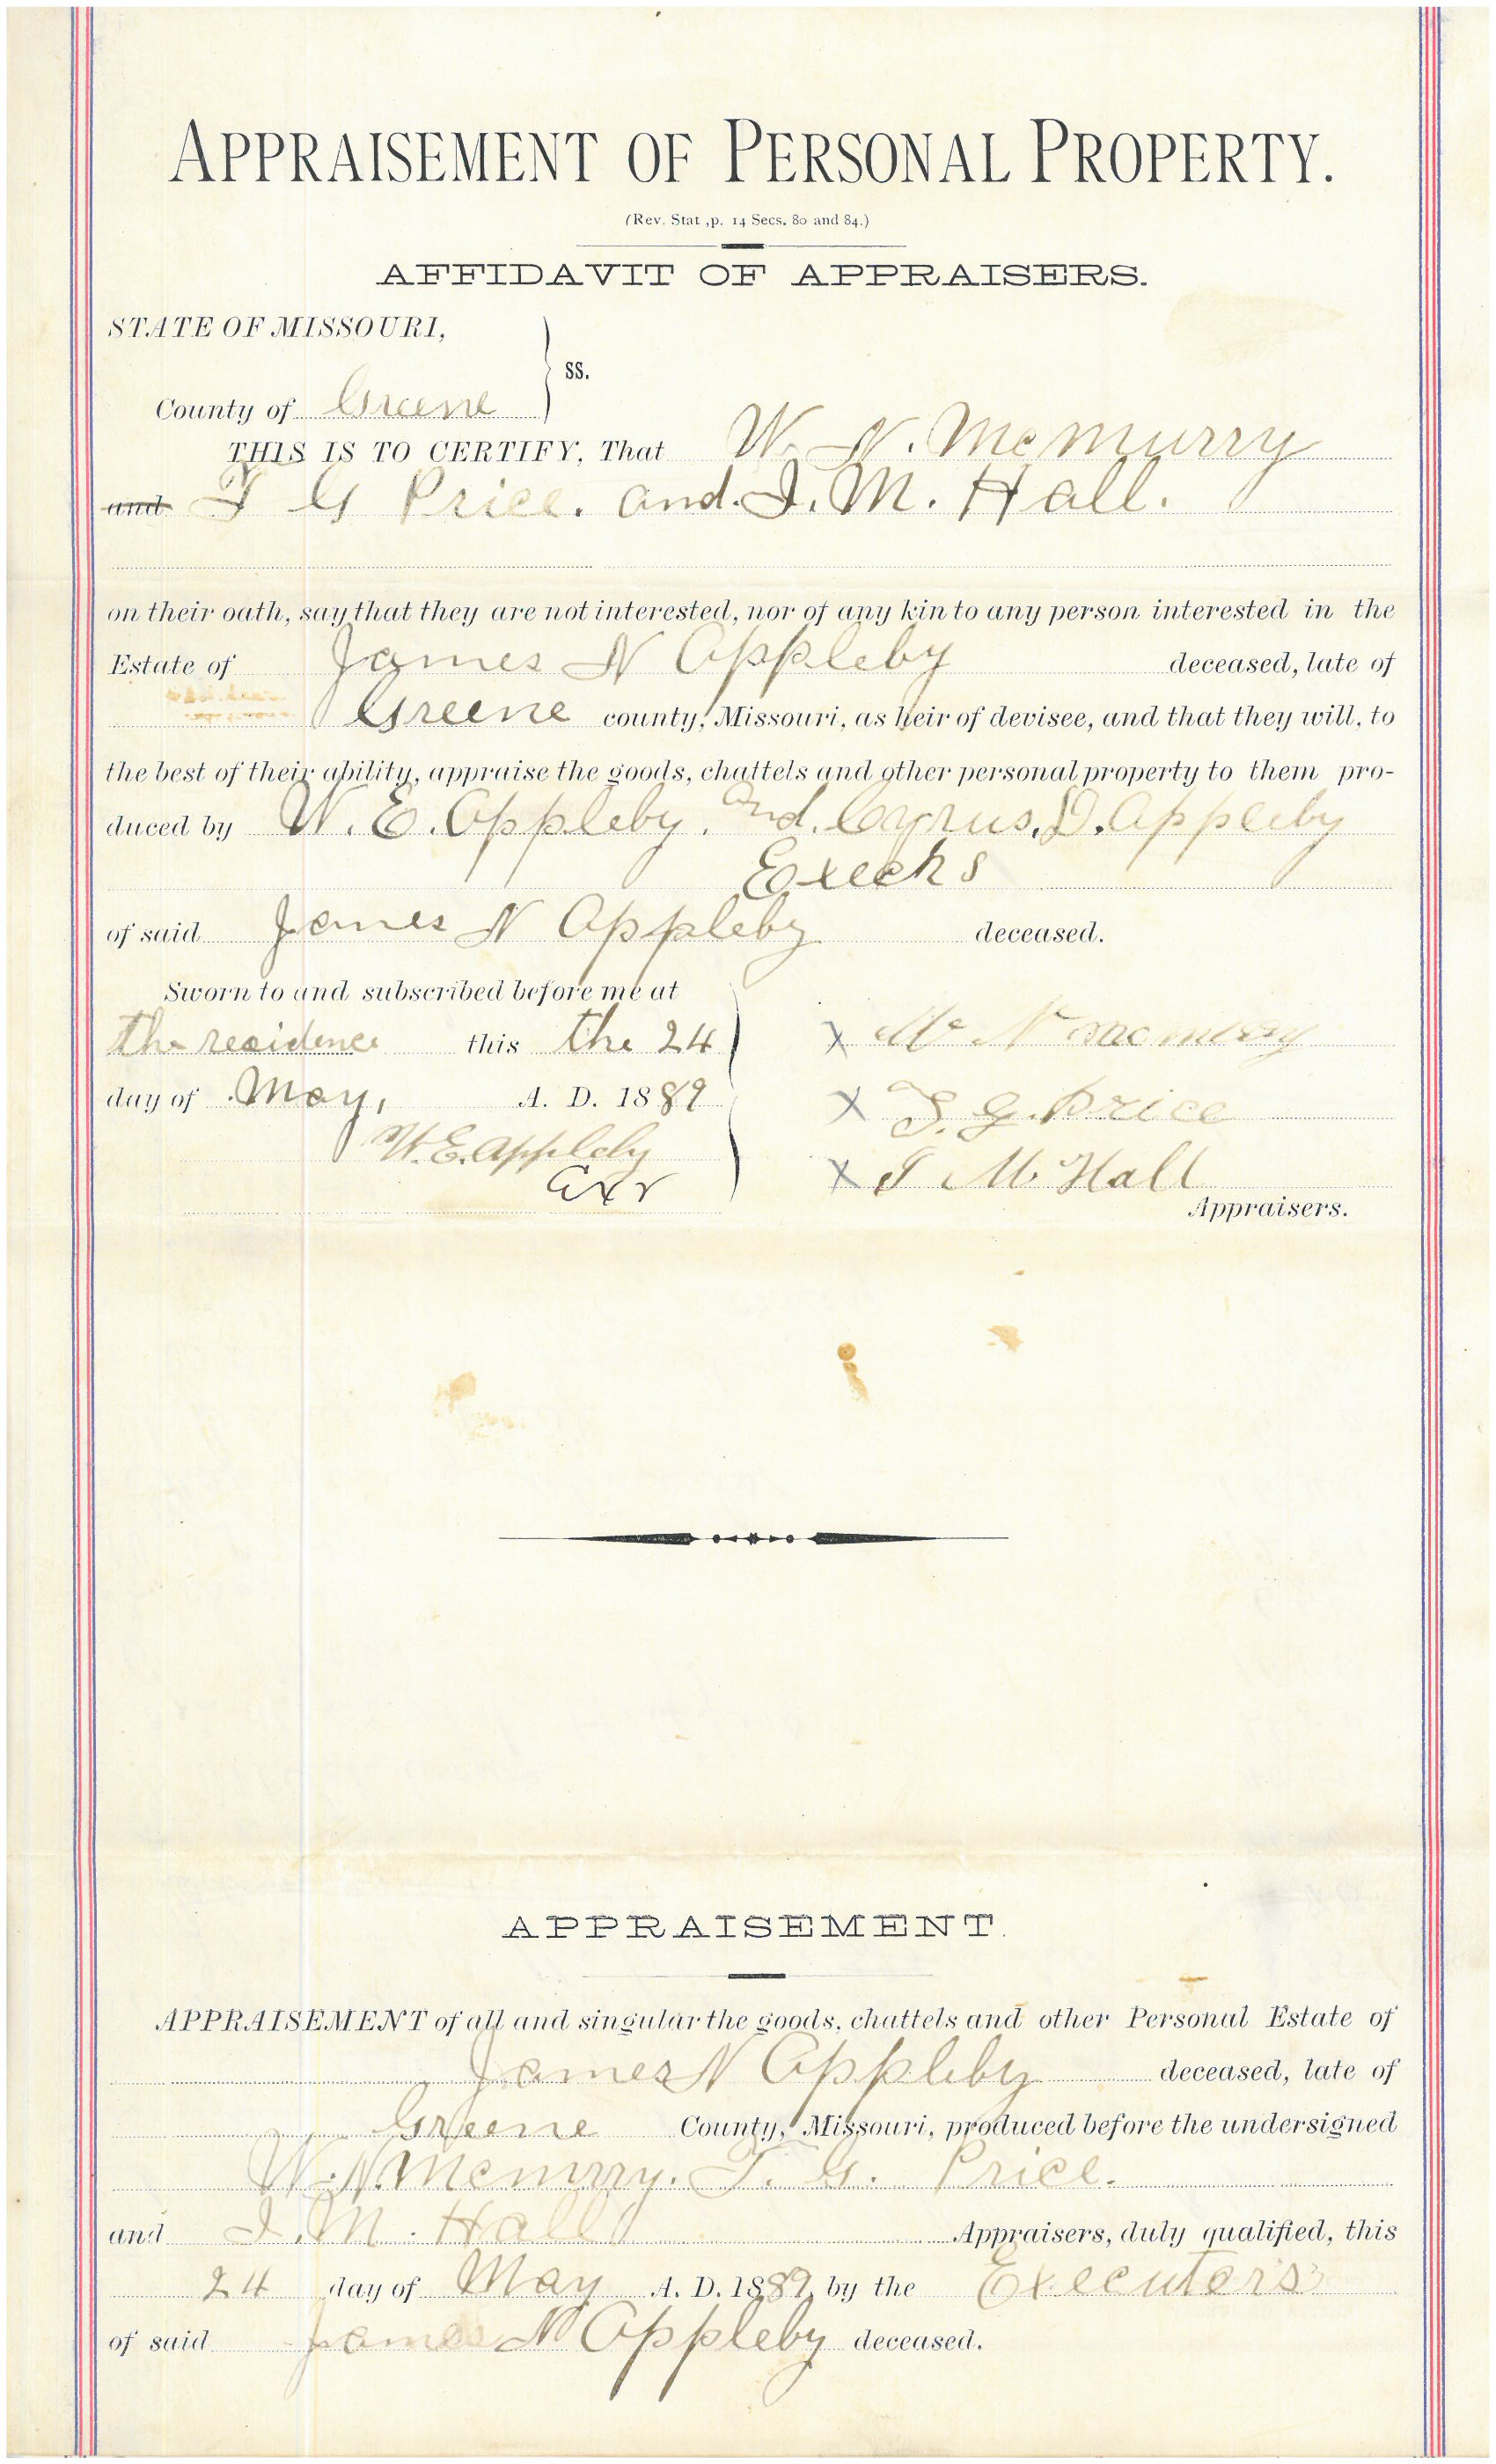 APPRAISEMENT OF PERSONAL PROPERTY.
(Rev. Stat ,p. 14 Secs. 80 and 84.)
AFFIDAVIT OF APPRAISERS.
STATE OF MISSOURI,
ss.
County of Greene
THIS IS TO CERTIFY, That W. N. McMurry
and T G Price. and. I. M. Hall.
on their oath, say that they are not interested, nor of any kin to any person interested in the
Estate of James N Appleby deceased, late of
Greene county, Missouri, as heir of devisee, and that they will, to
the best of their ability, appraise the goods, chattels and other personal property to them pro-
duced by W. E. Appleby. and. Cyrus. D. Appleby
of said James N Appleby deceased.
Sworn to and subscribed before me at
the residence this the 24
day of May, A. D. 1889
W. E. Appleby
Exr
X N
X T. G. Price
X I M Hall
Appraisers.
APPRAISEMENT.
APPRAISEMENT of all and singular the goods, chattels and other Personal Estate of
James N Appleby deceased, late of
Greene County, Missouri, produced before the undersigned
W. N. McMurry. T. G. Price.
and I. M. Hall Appraisers, duly qualified, this
24 day of May A. D. 1889 by the Executors
of said James N Appleby deceased.